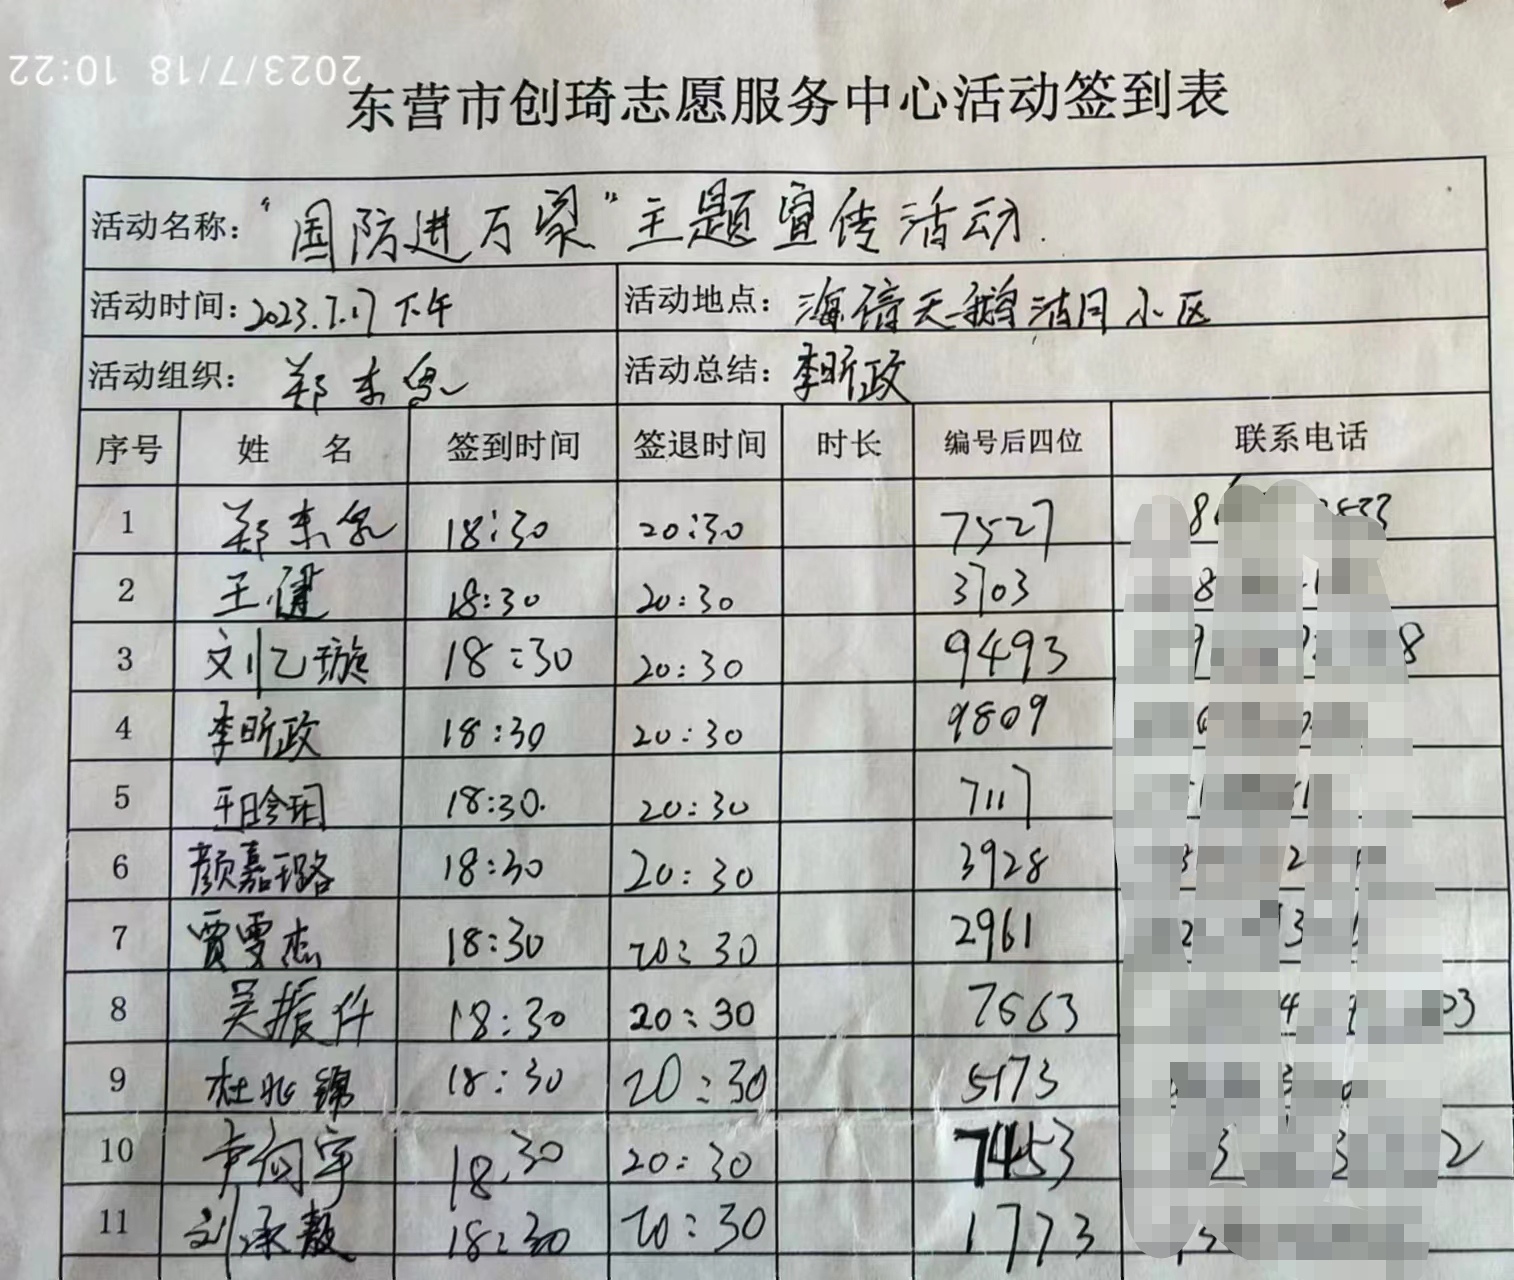 2023/7/18 10:22
东营市创琦志愿服务中心活动签到表
活动名称: “国防进万家”主题宣传活动.
活动时间: 2023.7.17 下午 活动地点: 海信天鹅湖小区
活动组织: 郑东 活动总结: 李昕政
序号 姓 名 签到时间 签退时间 时长 编号后四位 联系电话
1 郑东 18:30 20:30 7527
2 王健 18:30 20:30 3703
3 刘乙璇 18:30 20:30 9493 8
4 李昕政 18:30 20:30 9809
5 18:30. 20:30 7117
6 颜嘉璐 18:30 20:30 3928
7 贾雯杰 18:30 20:30 2961
8 吴振 18:30 20:30 7663 03
9 杜兆锦 18:30 20:30 5173
10 宇 18:30 20:30 7453 2
11 刘承 18:30 20:30 1773